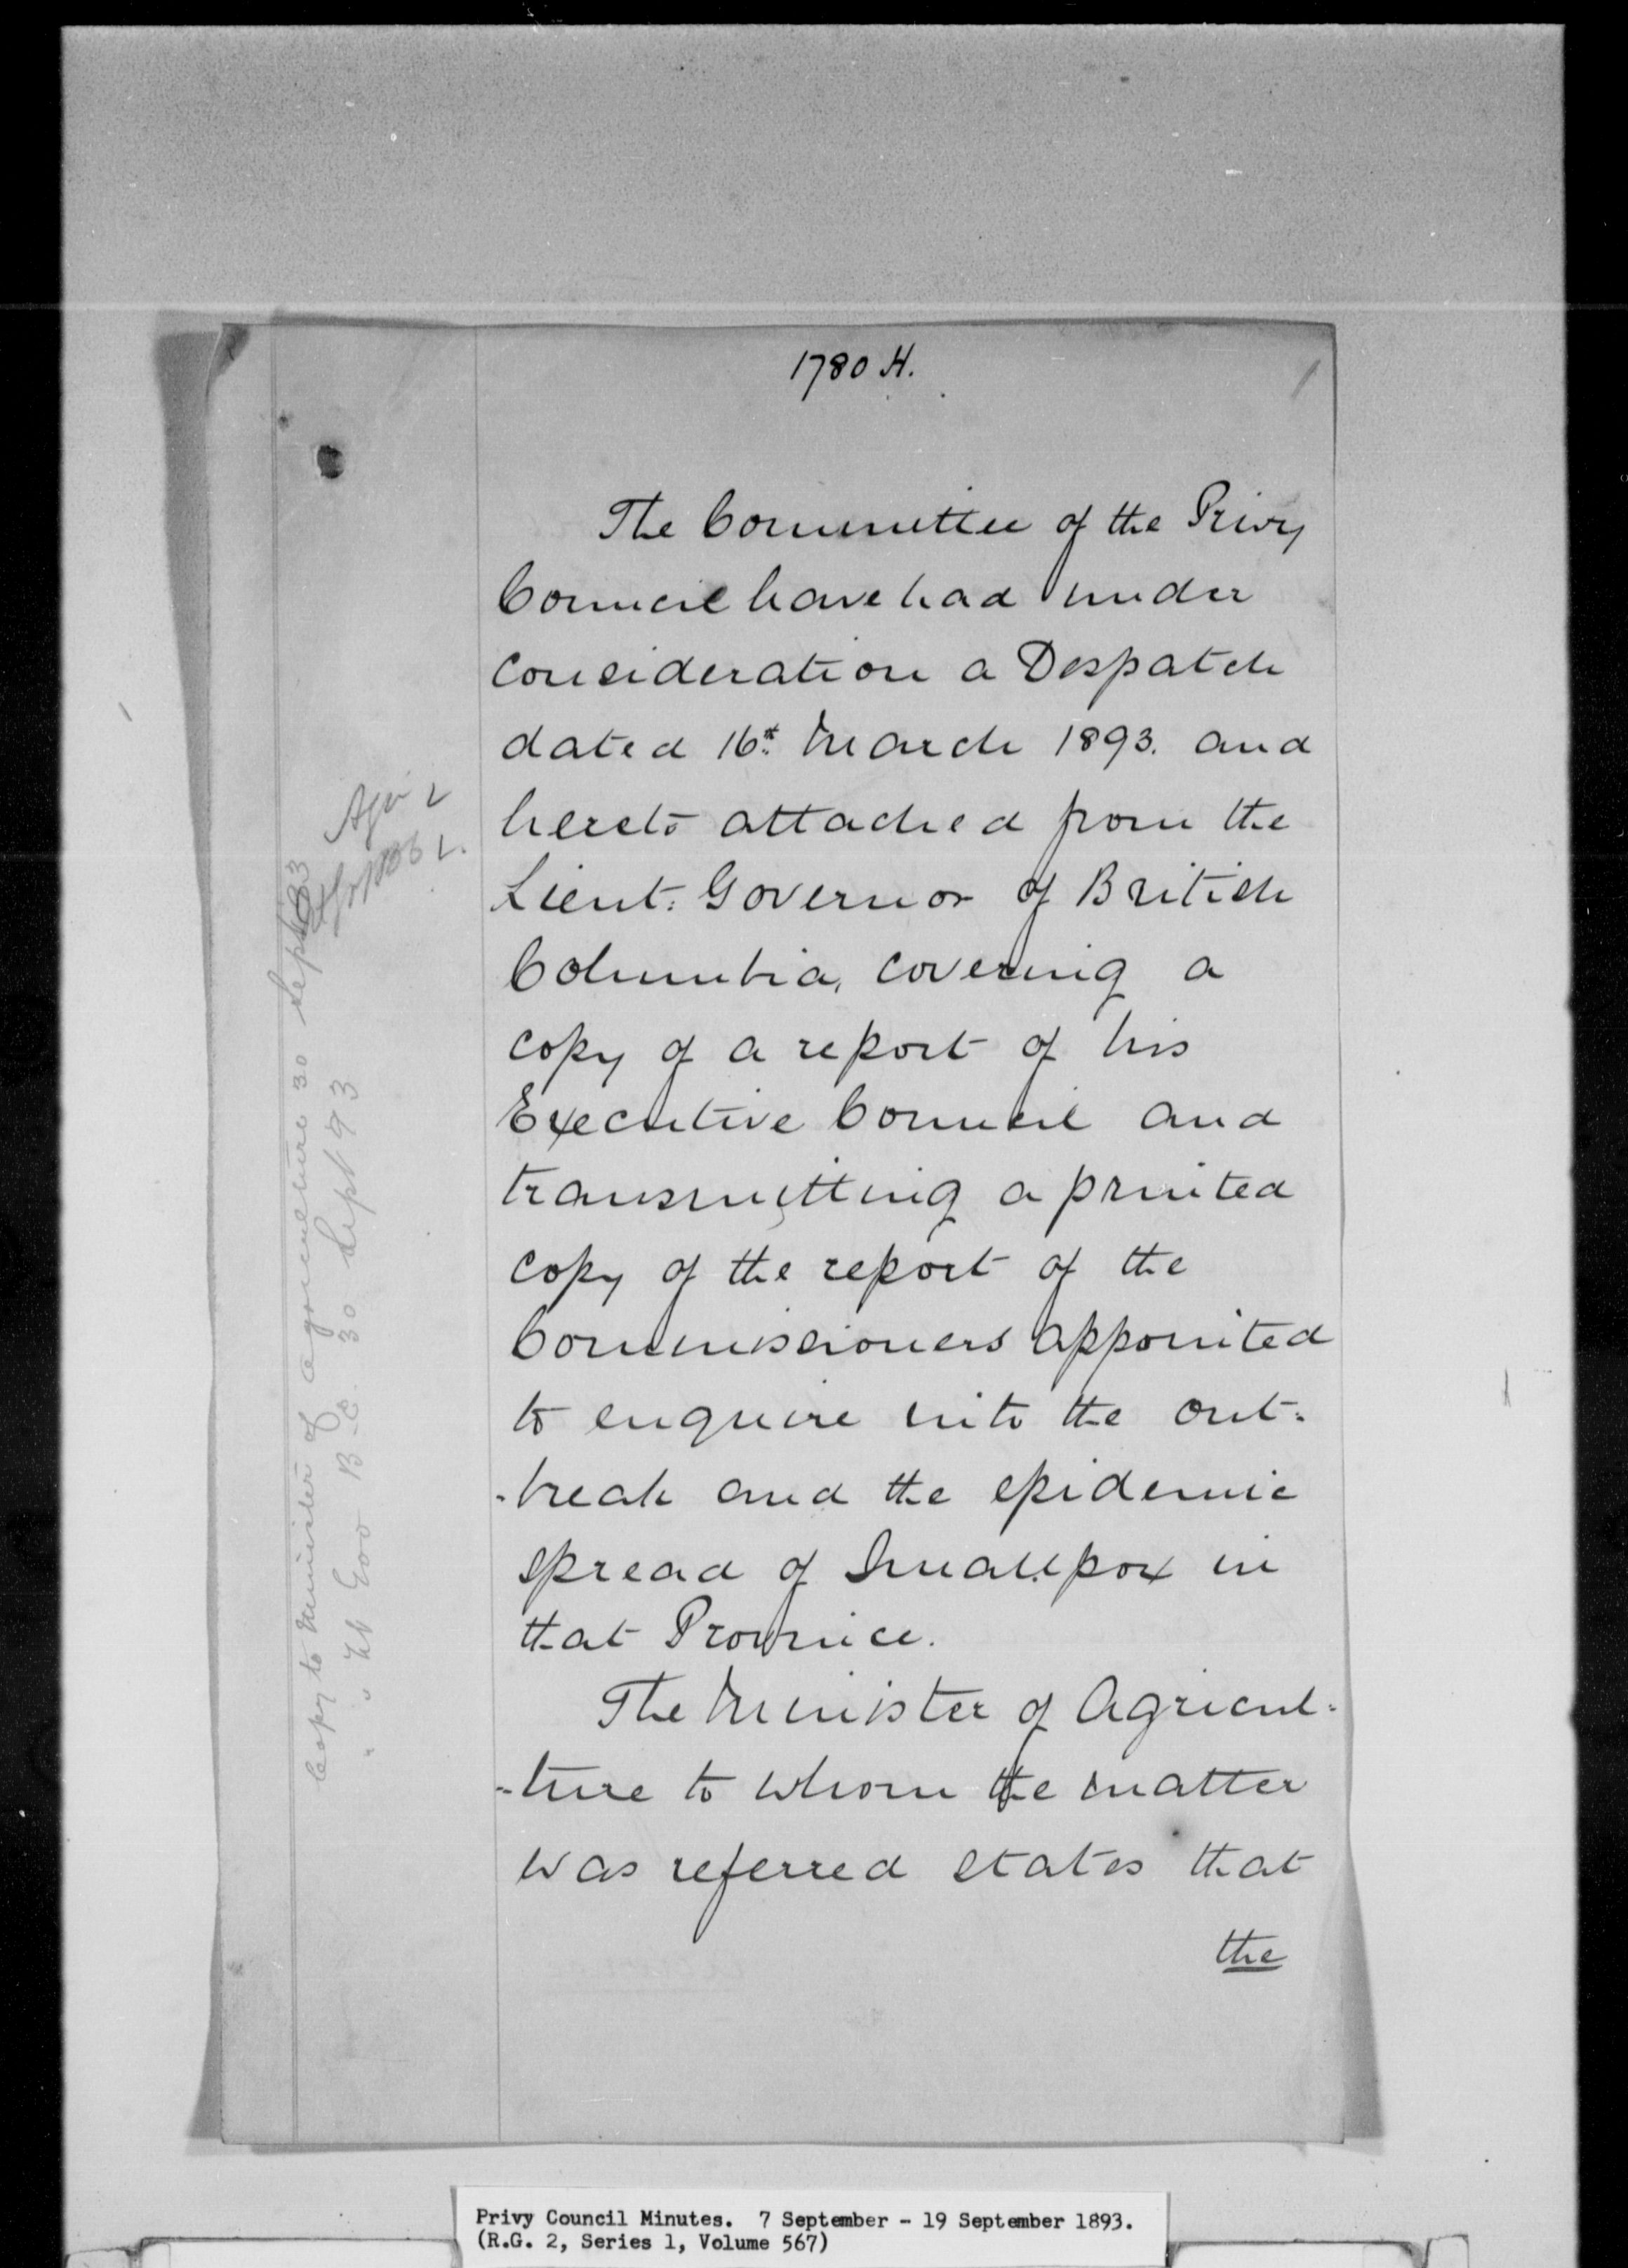 1780 H.
The Committee of the Privy
Council have had under
consideration a Despatch
dated 16th March 1893. and
hereto attached from the
Lieut: Governor of British
Columbia, covering a
copy of a report of his
Executive Council and
transmitting a printed
copy of the report of the
Commissioners appointed
to enquire into the out:
-break and the epidemic
spread of Smallpox in
that Province.
The Minister of Agricul:
-ture to whom the matter
was referred states that
the
Copy to Minister of Agriculture 30 Sept 93
" " Lt Gov B.C. 30 Sept 93
Privy Council Minutes. 7 September - 19 September 1893.
(R.G. 2, Series 1, Volume 567)